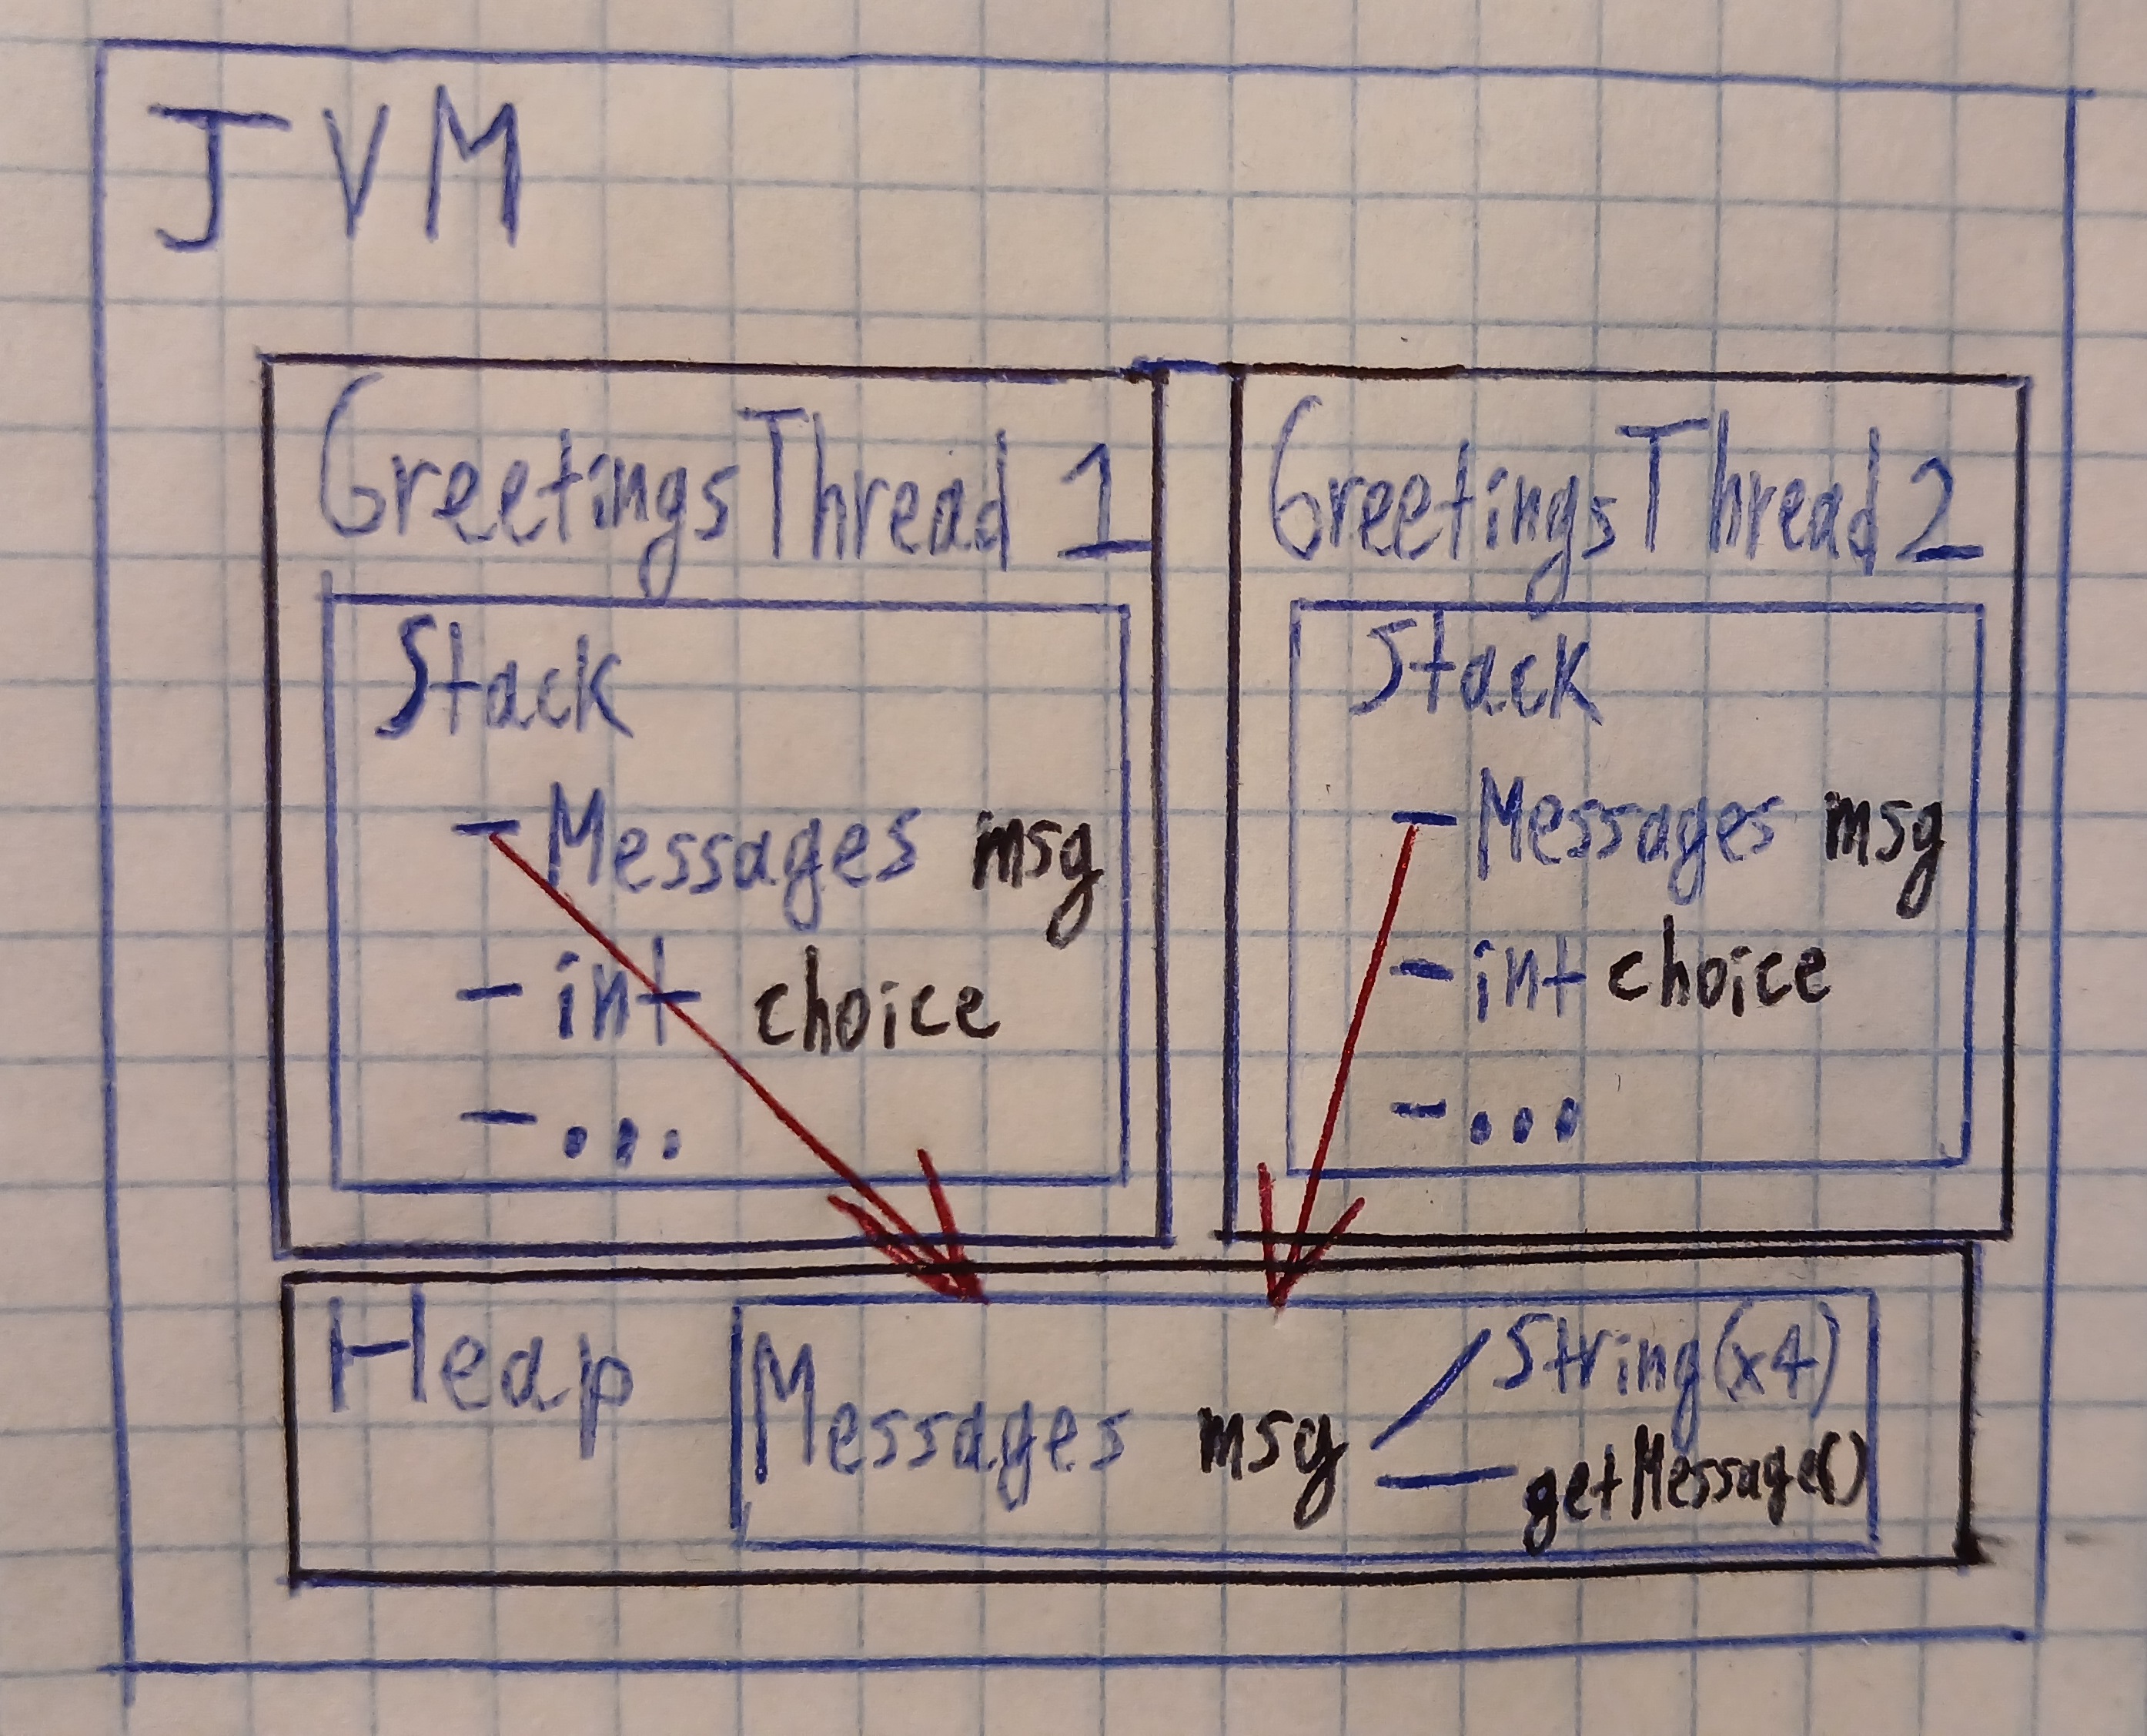 JVM
GreetingsThread 1
Stack
- Messages msg
- int choice
- ...
GreetingsThread 2
Stack
- Messages msg
- int choice
- ...
Heap
Messages msg
String(x4)
getMessage()